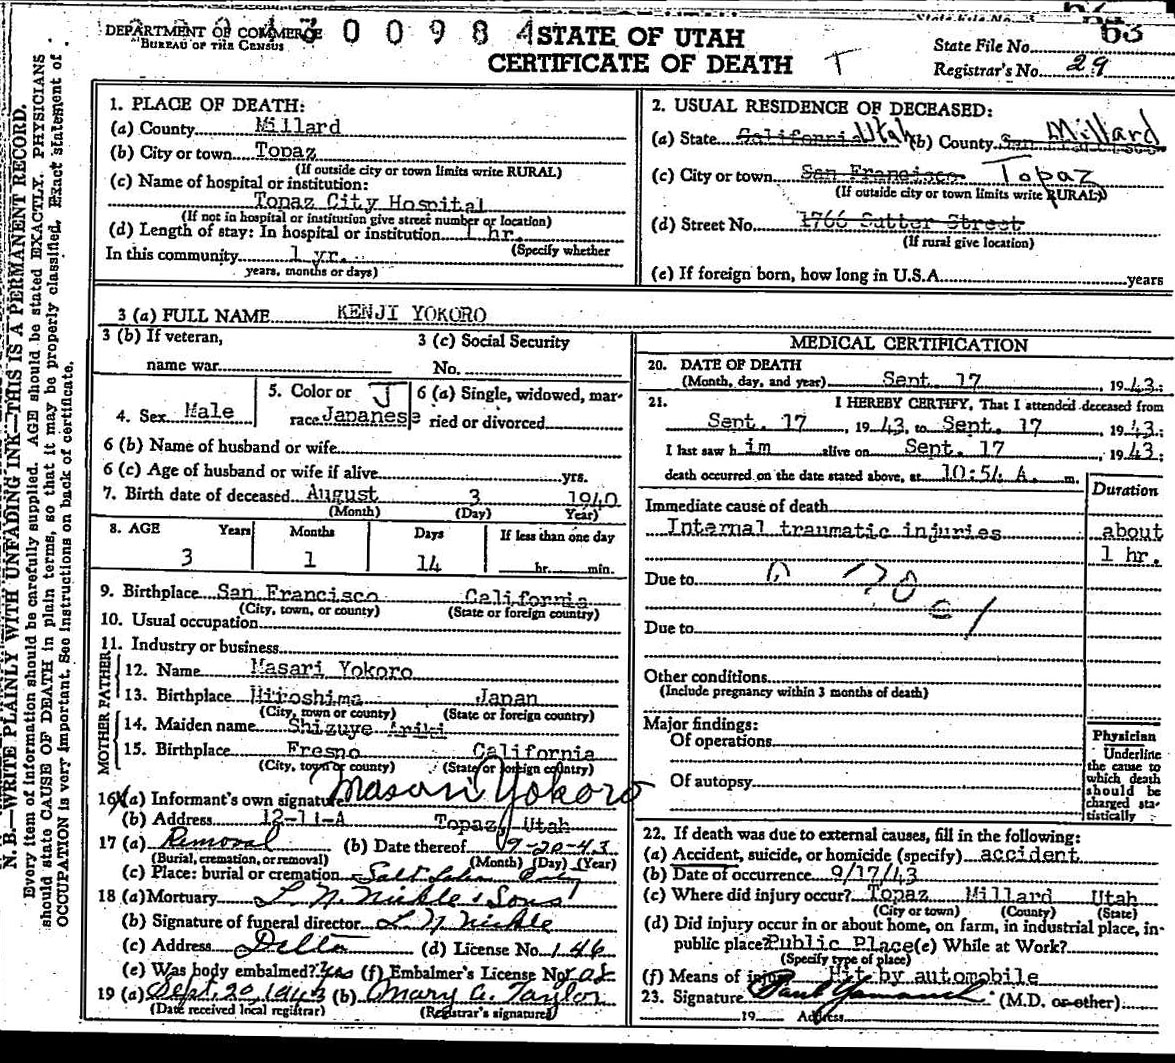 DEPARTMENT OF COMMERCE
BUREAU OF THE CENSUS
300984
STATE OF UTAH
CERTIFICATE OF DEATH T
63
State File No.
Registrar's No. 29
N. B.—WRITE PLAINLY WITH UNFADING INK—THIS IS A PERMANENT RECORD.
Every item of information should be carefully supplied. AGE should be stated EXACTLY. PHYSICIANS
should state CAUSE OF DEATH in plain terms, so that it may be properly classified. Exact statement of
OCCUPATION is very important. See instructions on back of certificate.
1. PLACE OF DEATH:
(a) County Millard
(b) City or town Topaz
(If outside city or town limits write RURAL)
(c) Name of hospital or institution:
Topaz City Hospital
(If not in hospital or institution give street number or location)
(d) Length of stay: In hospital or institution 1 hr.
(Specify whether
In this community 1 yr.
years, months or days)
2. USUAL RESIDENCE OF DECEASED:
(a) State California Utah (b) County San Francisco Millard
(c) City or town San Francisco Topaz
(If outside city or town limits write RURAL)
(d) Street No. 1766 Sutter Street
(If rural give location)
(e) If foreign born, how long in U.S.A. years
3 (a) FULL NAME KENJI YOKORO
3 (b) If veteran,
name war
3 (c) Social Security
No.
4. Sex Male
5. Color or J
race Japanese
6 (a) Single, widowed, mar-
ried or divorced
6 (b) Name of husband or wife
6 (c) Age of husband or wife if alive yrs.
7. Birth date of deceased August 3 1940
(Month) (Day) Year)
8. AGE Years Months Days If less than one day
3 1 14 hr. min.
9. Birthplace San Francisco California
(City, town, or county) (State or foreign country)
10. Usual occupation
11. Industry or business
FATHER
12. Name Masari Yokoro
13. Birthplace Hiroshima Japan
(City, town or county) (State or foreign country)
MOTHER
14. Maiden name Shizuye Ariki
15. Birthplace Fresno California
(City, town or county) (State or foreign country)
16 X (a) Informant's own signature Masari Yokoro
(b) Address 12-11-A Topaz, Utah
17 (a) Removal (b) Date thereof 9-20-43
(Burial, cremation, or removal) (Month) (Day) (Year)
(c) Place: burial or cremation Salt Lake City
18 (a) Mortuary L. N. Nickle & Sons
(b) Signature of funeral director L N Nickle
(c) Address Delta (d) License No. 146
(e) Was body embalmed? Yes (f) Embalmer's License No. 108
19 (a) Sept. 20, 1943 (b) Mary A. Taylor
(Date received local registrar) (Registrar's signature)
MEDICAL CERTIFICATION
20. DATE OF DEATH
(Month, day, and year) Sept. 17, 1943:
21. I HEREBY CERTIFY, That I attended deceased from
Sept. 17, 1943, to Sept. 17, 1943:
I last saw him alive on Sept. 17, 1943:
death occurred on the date stated above, at 10:54 A. m.
Duration
Immediate cause of death
Internal traumatic injuries about
1 hr.
Due to 170
Due to
Other conditions
(Include pregnancy within 3 months of death)
Major findings:
Of operations
Of autopsy
Physician
Underline
the cause to
which death
should be
charged sta-
tistically
22. If death was due to external causes, fill in the following:
(a) Accident, suicide, or homicide (specify) accident
(b) Date of occurrence 9/17/43
(c) Where did injury occur? Topaz Millard Utah
(City or town) (County) (State)
(d) Did injury occur in or about home, on farm, in industrial place, in-
public place? Public Place (e) While at Work?
(Specify type of place)
(f) Means of injury Hit by automobile
23. Signature (M.D. or other)
19 Address